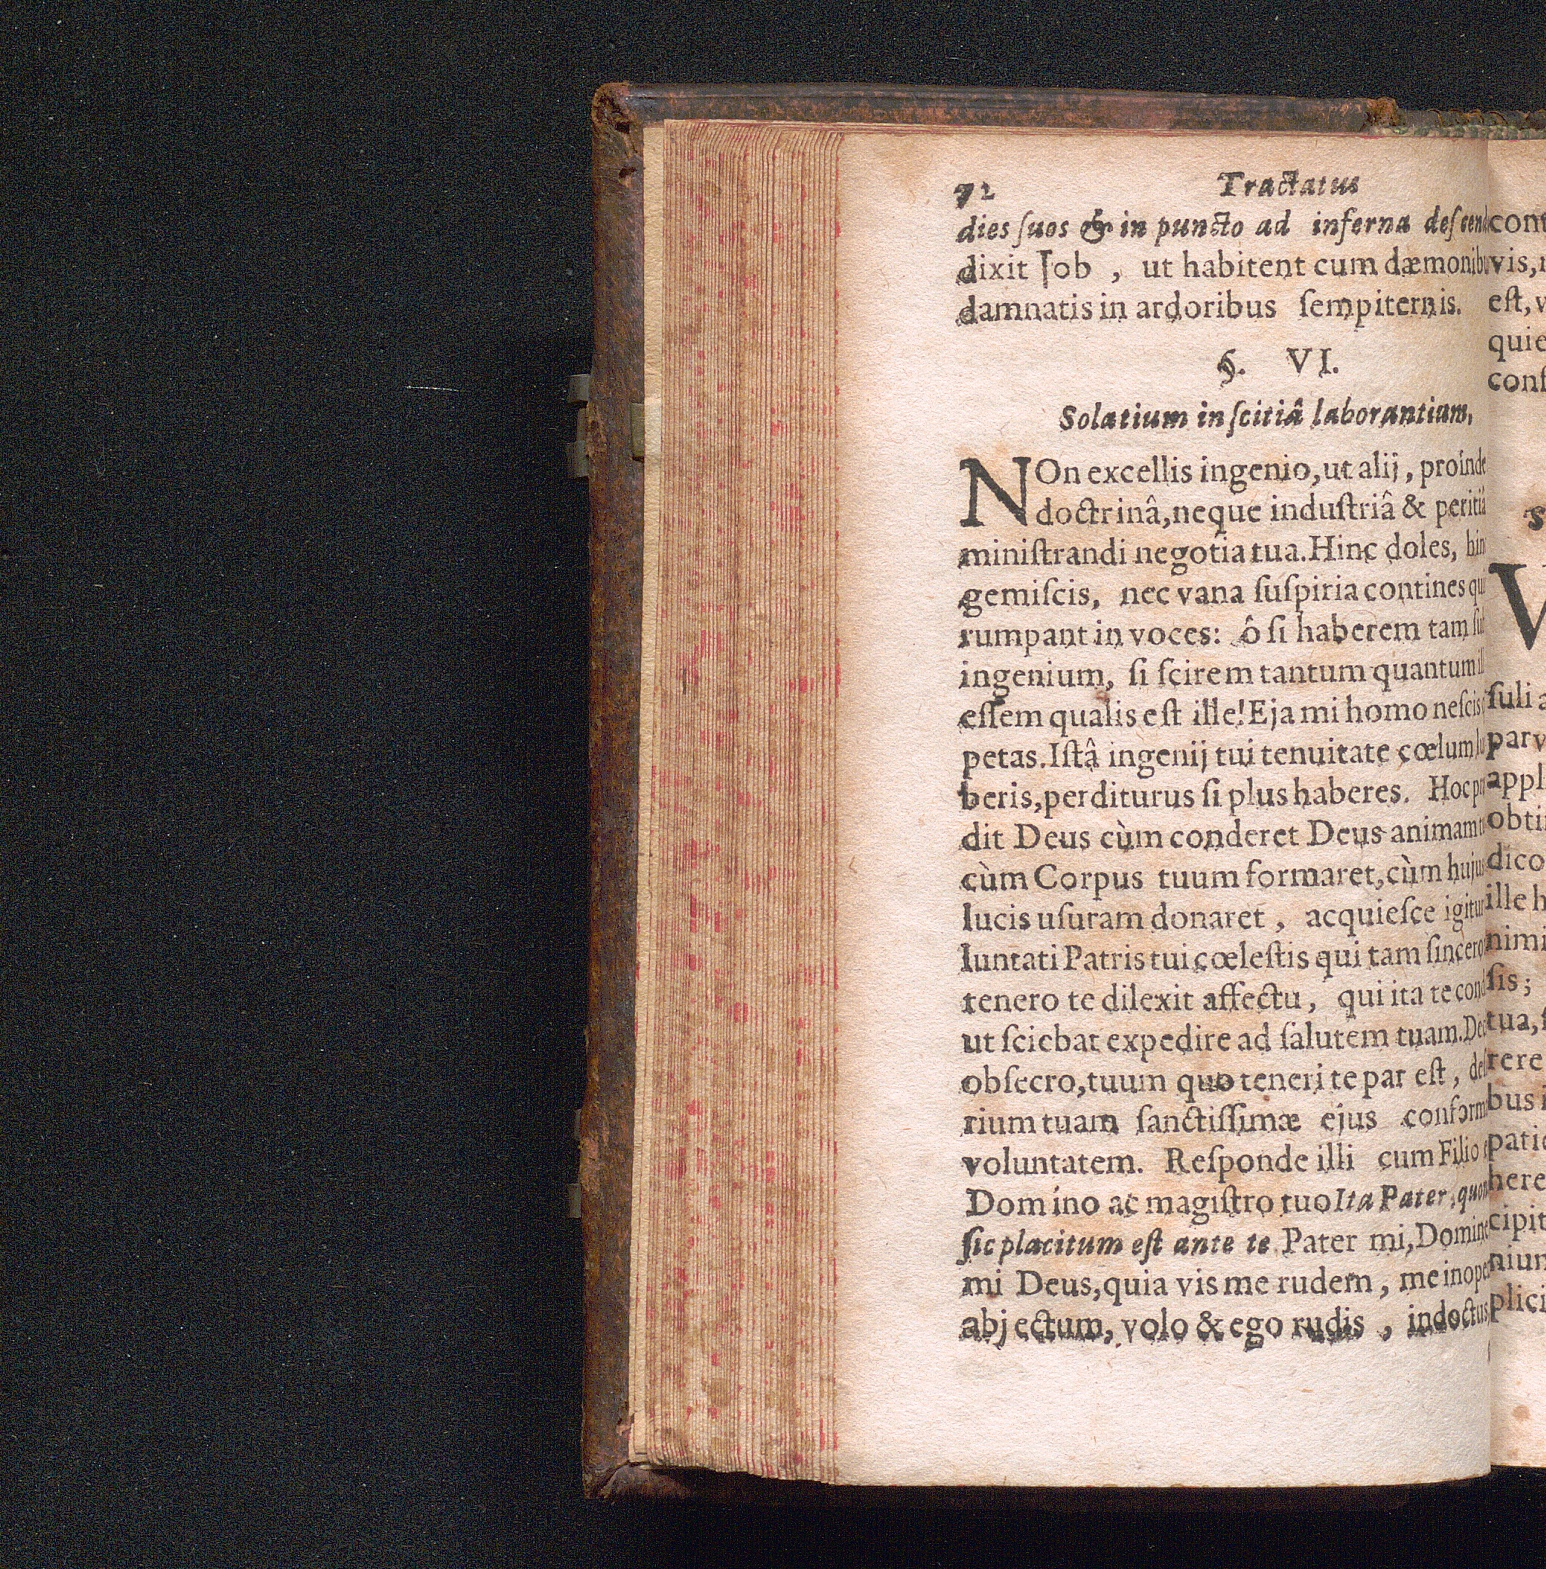 72 Tractatus
dies ſuos & in puncto ad inferna deſcend
dixit Job , ut habitent cum dæmonibu
damnatis in ardoribus ſempiternis.
§. VI.
Solatium inſcitiâ laborantium.
NOn excellis ingenio,ut alij , proinde
doctrinâ,neque induſtriâ & peritiâ
miniſtrandi negotia tua.Hinc doles, hin
gemiſcis, nec vana ſuſpiria contines qu
rumpant in voces: ô ſi haberem tam
ingenium, ſi ſcirem tantum quantum ill
eſſem qualis eſt ille!Eja mi homo neſcis
petas.Iſtâ ingenij tui tenuitate cœlum
beris,perditurus ſi plus haberes. Hoc
dit Deus cùm conderet Deus animam
cùm Corpus tuum formaret,cùm huju
lucis uſuram donaret , acquieſce igitur
luntati Patris tui cœleſtis qui tam ſincero
tenero te dilexit affectu , qui ita te cond
ut ſciebat expedire ad ſalutem tuam.De
obſecro,tuum quo teneri te par eſt , deſ
rium tuam ſanctiſſimæ ejus conform
voluntatem. Reſponde illi cum Filio
Domino ac magiſtro tuo Ita Pater, quon
ſic placitum eſt ante te Pater mi,Domine
mi Deus,quia vis me rudem , me inope
abjectum, volo & ego rudis , indoctus
cont
vis,
eſt,
quie
conſ
S
V
ſuli
parv
appl
obti
dico
ille h
nimi
ſis ;
tua,
rere
bus
patie
here
cipit
niun
plici